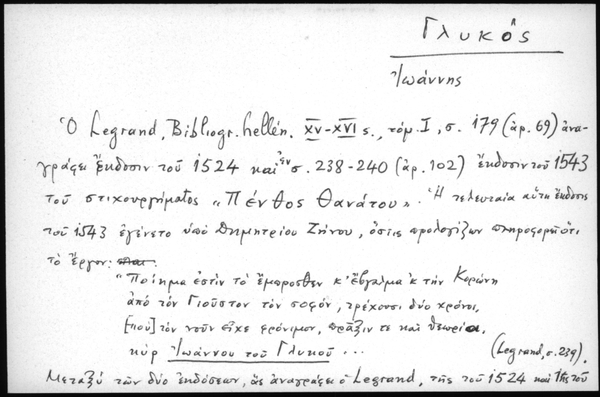 Γλυκὸς
Ἰωάννης
Ὁ Legrand, Bibliogr. hellén. XV-XVI s., τόμ. I, σ. 179 (ἀρ. 69) ἀνα-
γράφει ἔκδοσιν τοῦ 1524 καὶ ἐν σ. 238-240 (ἀρ. 102) ἔκδοσιν τοῦ 1543
τοῦ στιχουργήματος "Πένθος Θανάτου". Ἡ τελευταία αὕτη ἔκδοσις
τοῦ 1543 ἐγένετο ὑπὸ Δημητρίου Ζήνου, ὅστις προλογίζων πληροφορεῖ ὅτι
τὸ ἔργον:
"Ποίημα ἐστὶν τὸ ἔμπροσθεν κ' ἔβγαλμα 'κ τὴν Κορώνη
ἀπὸ τὸν Γιοῦστον τὸν σοφόν, τρέχουσι δύο χρόνοι,
[ποὺ] τὸν νοῦν εἶχε φρόνιμον, πρᾶξιν τε καὶ θεωρία,
κὺρ Ἰωάννου τοῦ Γλυκοῦ ... (Legrand, σ. 239).
Μεταξὺ τῶν δύο ἐκδόσεων, ἃς ἀναγράφει ὁ Legrand, τῆς τοῦ 1524 καὶ τῆς τοῦ